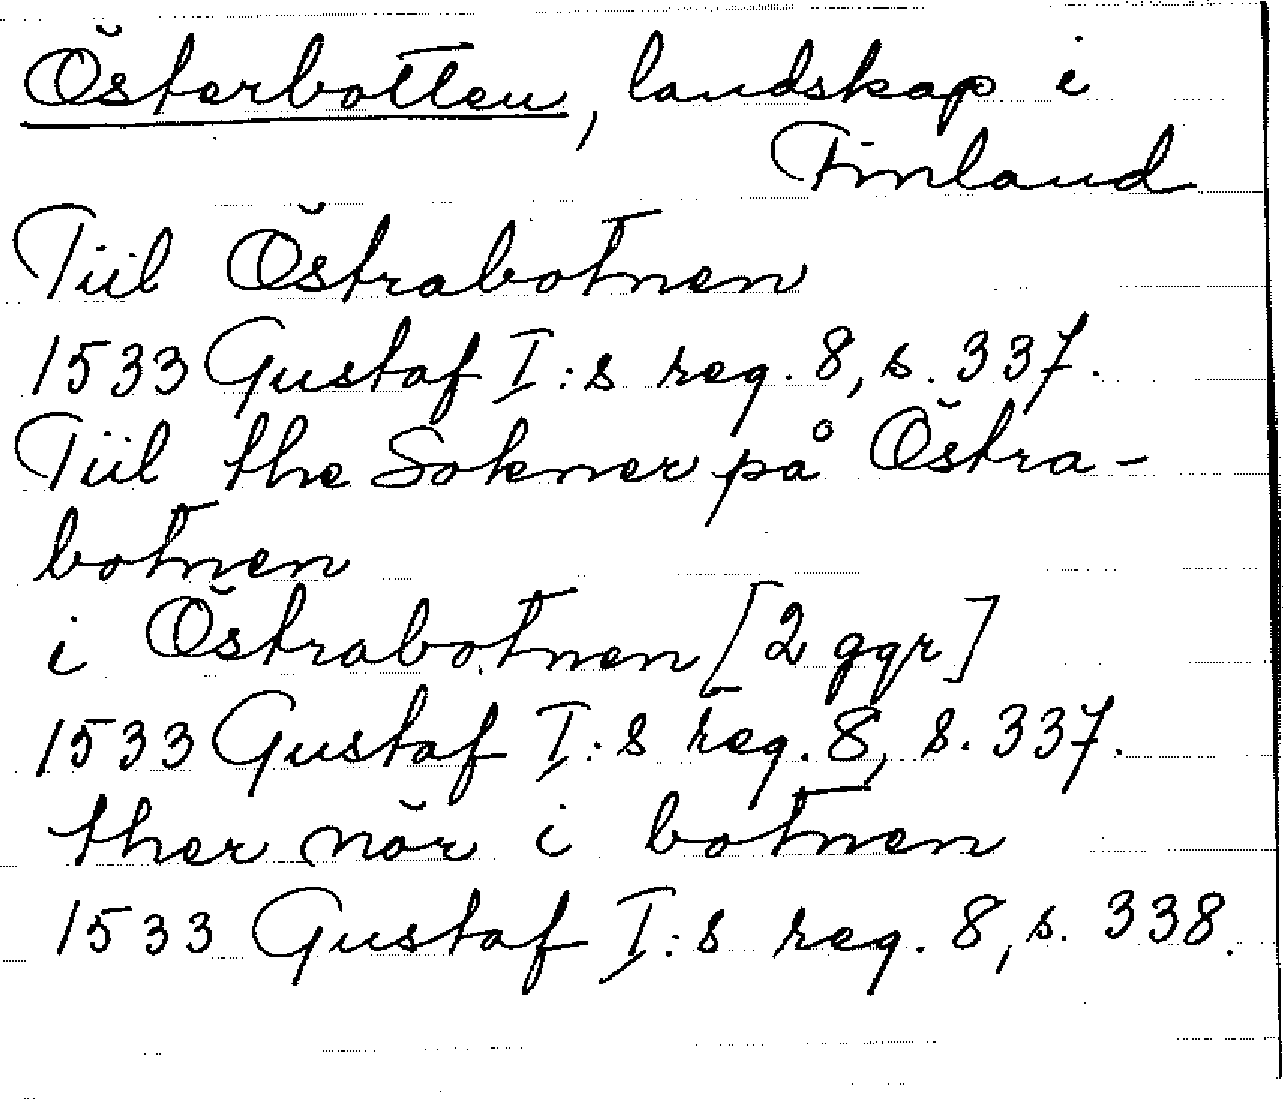 Österbotten, landskap i
Finland
Tiil Östrabotnen
1533 Gustaf I:s reg. 8, s. 337.
Tiil the Sokner på Östra-
botnen
i Östrabotnen [2 ggr]
1533 Gustaf I:s reg. 8, s. 337.
ther nör i botnen
1533 Gustaf I:s reg. 8, s. 338.